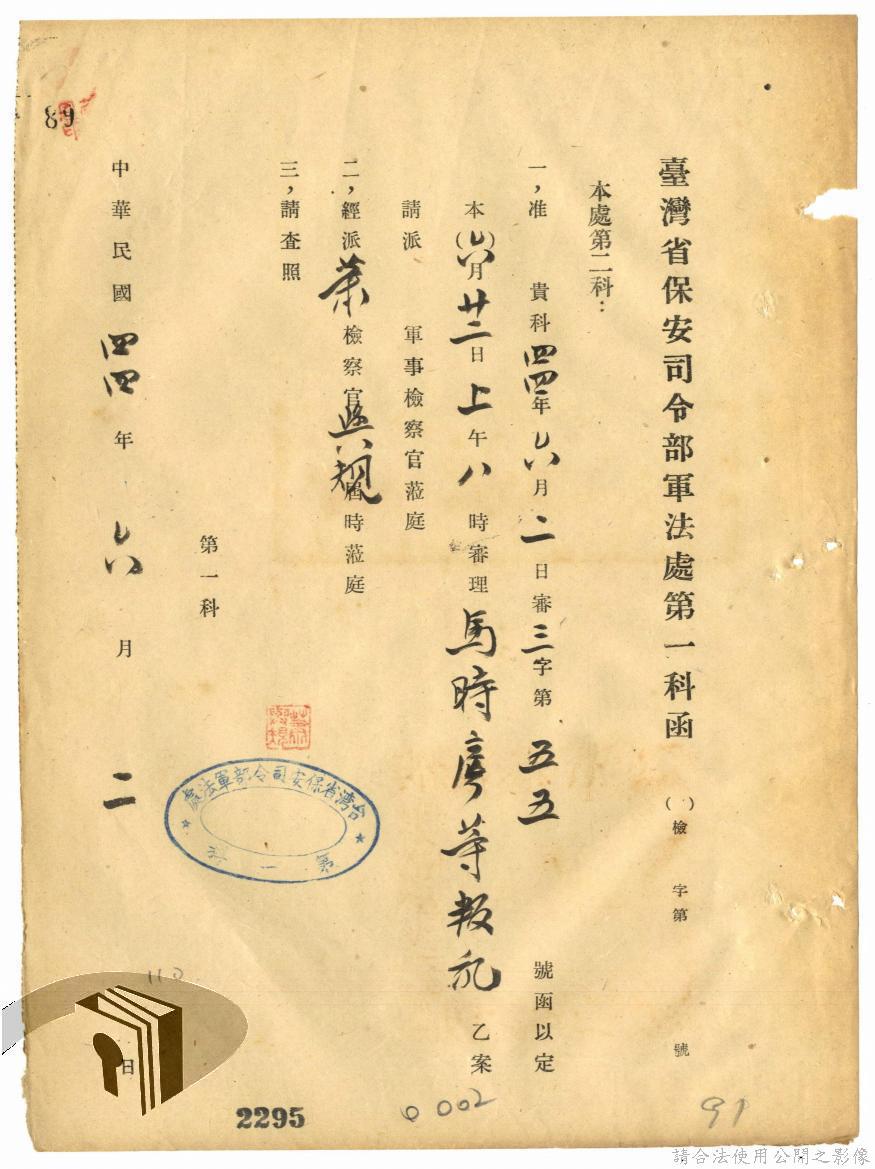 臺灣省保安司令部軍法處第一科函（ ）檢字第 號
本處第二科：
一，准 貴科四四年六月二日審三字第五五號函以定
本（六）月廿二日上午八時審理馬時彥等叛乱乙案
請派 軍事檢察官蒞庭
二，經派葉檢察官 規屆時蒞庭
三，請查照
第一科
台湾省保安司令部軍法處
第一
中華民國四四年六月二日
89
2295
002
91
請合法使用公開之影像